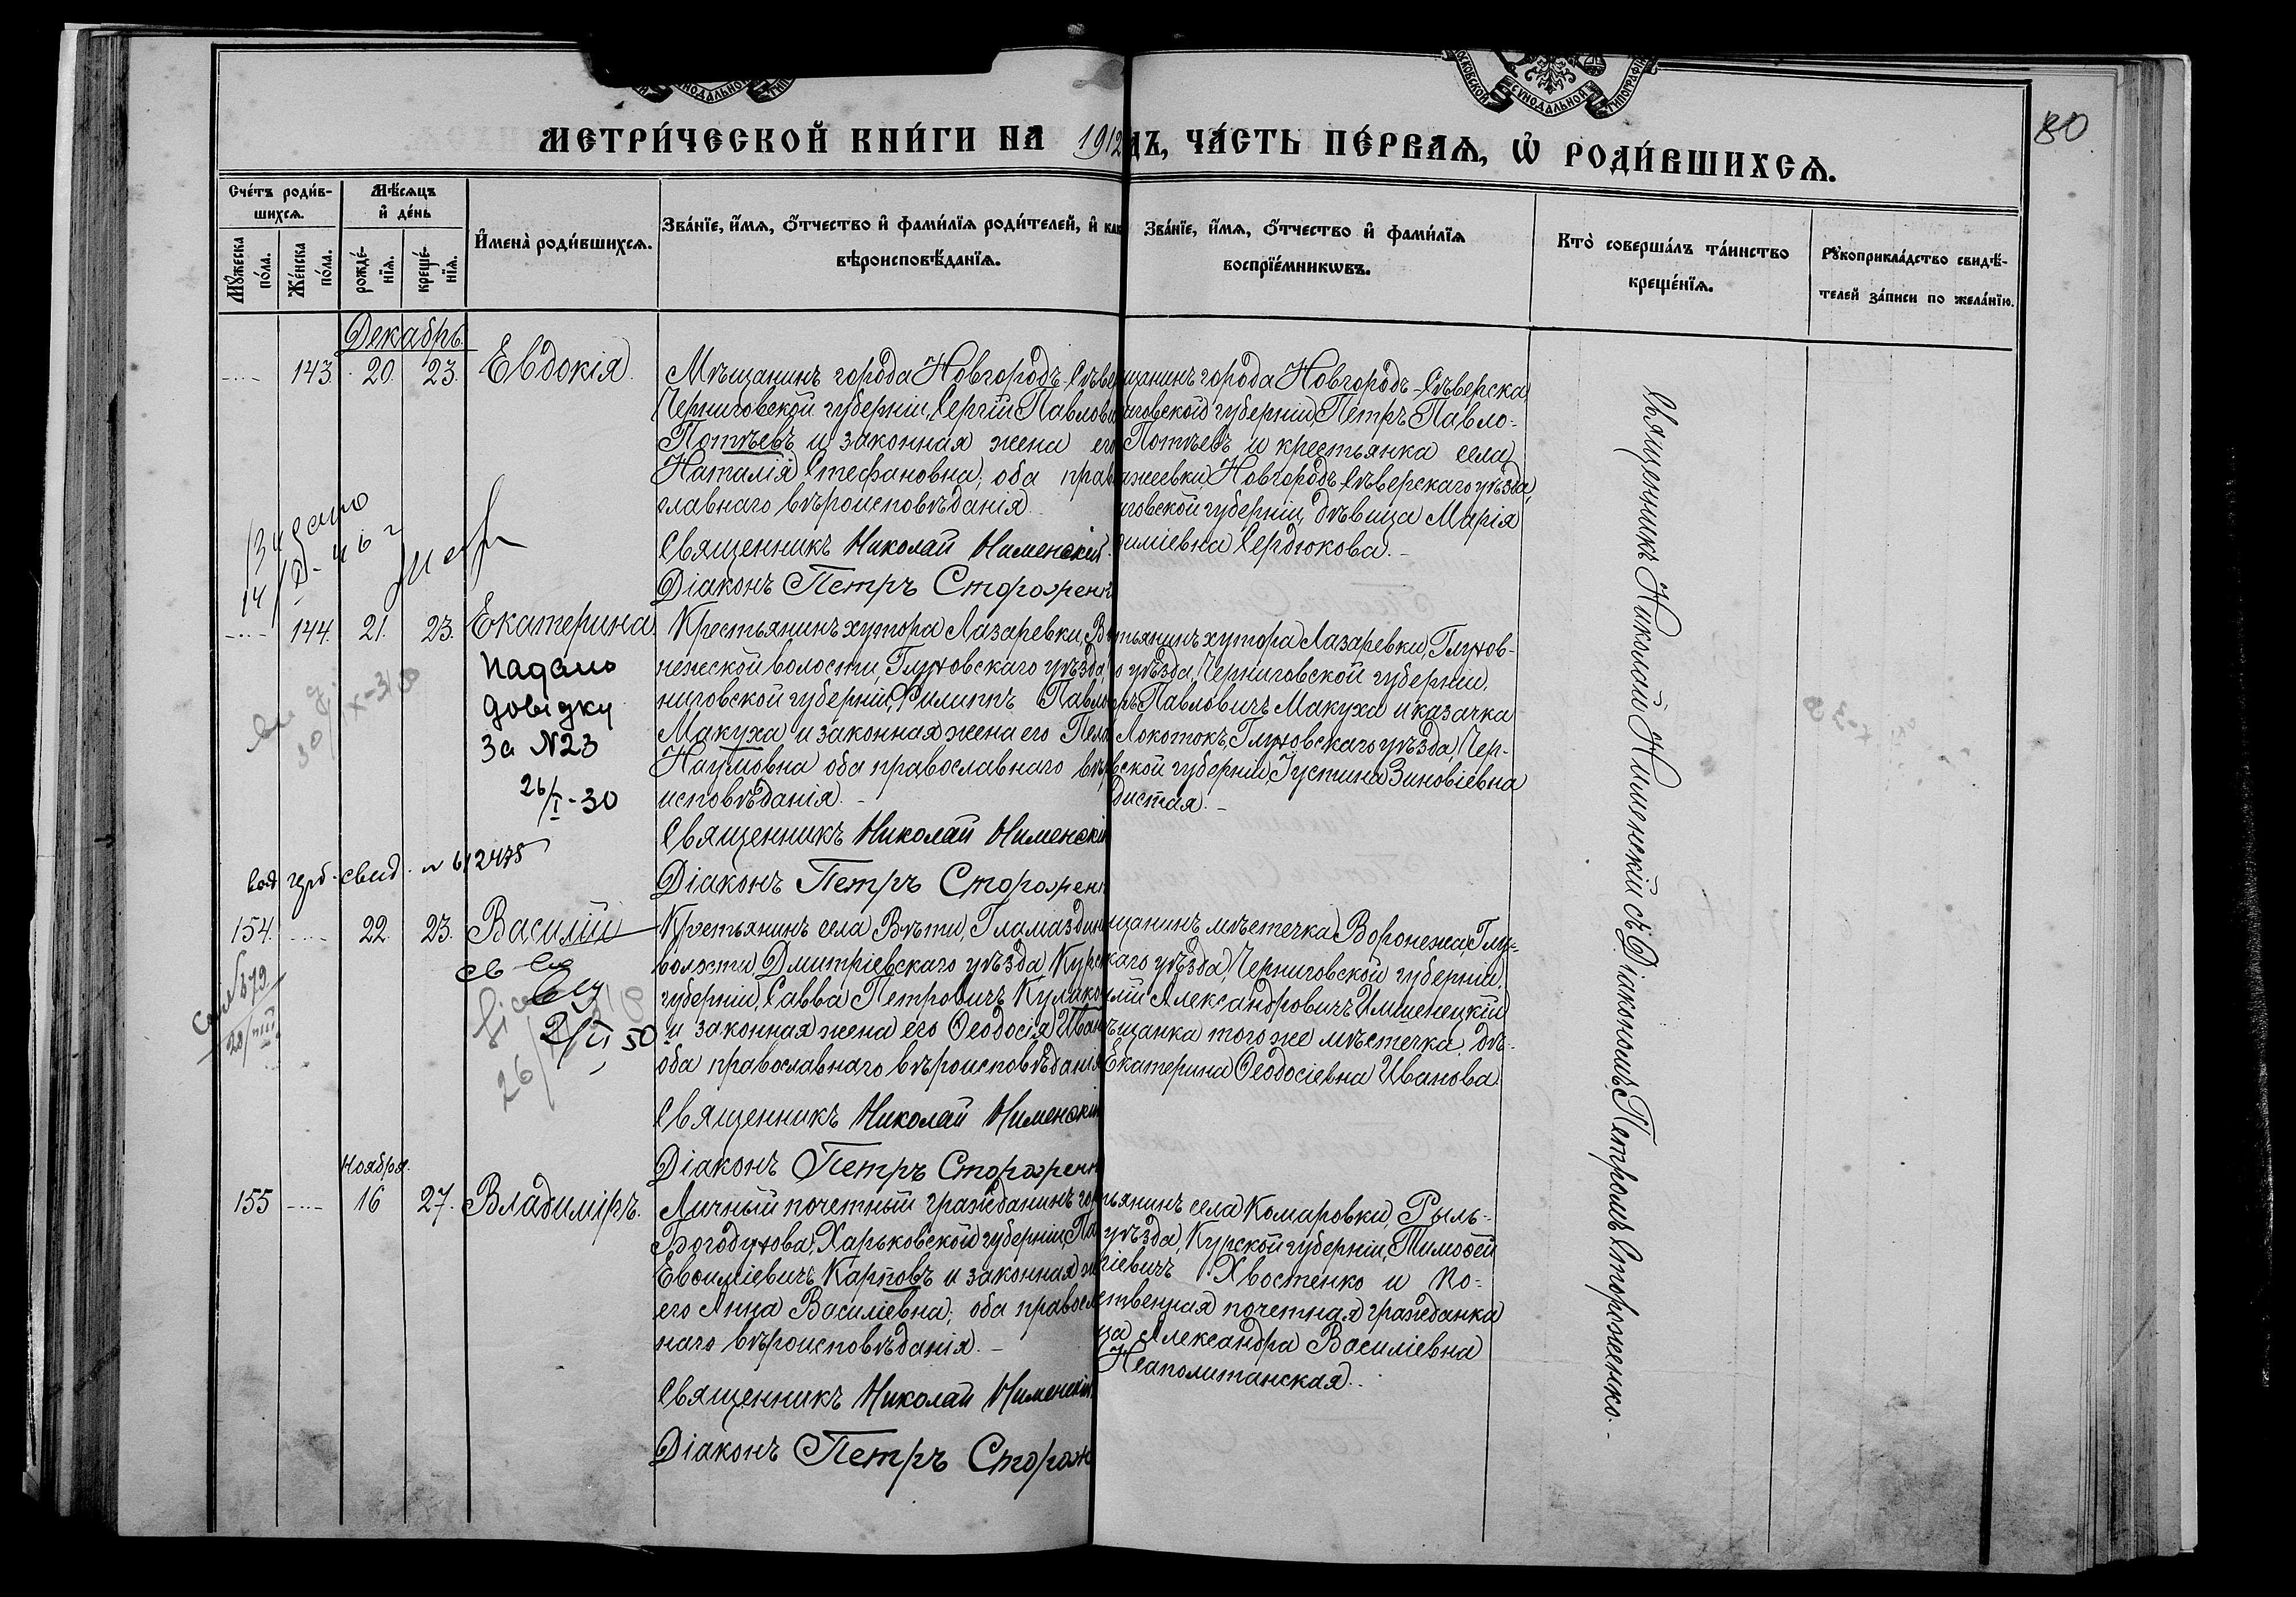 МЕТРИ́ЧЕСКОЙ КНИ́ГИ НА 1912 дъ, ЧА́СТЬ ПЕ́РВАЯ, Ѡ҆ РОДИ́ВШИХСЯ.
80
Сче́тъ роди́в-
шихся.
Мѣ́сяцъ
и҆ де́нь
Мꙋ́жеска
по́ла.
Же́нска
по́ла.
рожде́-
нїя.
креще́-
нїя.
И҆мена̀ роди́вшихся.
Зва́нїе, и҆́мя, ѻ҆́тчество и҆ фами́лїя роди́телей, и҆ как
вѣроисповѣ́данїя.
Зва́нїе, и҆́мя, ѻ҆́тчество и҆ фами́лїя
воспрїе́мникѡвъ.
Кто̀ соверша́лъ та́инство
креще́нїя.
Рꙋкоприкла́дство свидѣ́-
телей за́писи по жела́нїю.
Декабрь
143. 20. 23. Евдокія.
Мѣщанинъ города Новгородъ-Сѣве
Черниговской губерніи, Сергій Павлови
Потѣевъ и законная жена ег
Наталія Стефановна, оба прав
славнаго вѣроисповѣданія.
Священникъ Николай Нименскій.
Діаконъ Петръ Стороженк
щанинъ города Новгородъ-Сѣверска
иговской губерніи, Петръ Павло-
Потѣевъ и крестьянка села
жеевки, Новгородъ-Сѣверскаго уѣзда,
говской губерніи, дѣвица Марія
иміевна Сердюкова.
144. 21. 23. Екатерина.
надано
довідку
За №23
26/I-30
Крестьянинъ хутора Лазаревки, В
нежской волости, Глуховскаго уѣзда,
ниговской губерніи, Филиппъ Павло
Макуха и законная жена его Пела
Наумовна оба православнаго вѣр
исповѣданія.
Священникъ Николай Нименскій
Діаконъ Петръ Стороженк
тьянинъ хутора Лазаревки, Глухов-
о уѣзда, Черниговской губерніи,
ръ Павловичъ Макуха и казачка
Локотокъ, Глуховскаго уѣзда, Чер-
вской губерніи, Іустина Зиновіевна
дистая.
свид. №
154. 22. 23. Василій
Крестьянинъ села Вѣти, Гламаздин
волости, Дмитріевскаго уѣзда, Курск
губерніи, Савва Петровичъ Кулико
и законная жена его Ѳеодосія Иван
оба православнаго вѣроисповѣданія
Священникъ Николай Нименскій
Діаконъ Петръ Стороженк
щанинъ мѣстечка Воронежа, Глу-
каго уѣзда, Черниговской губерніи,
лій Александровичъ Имшенецкій
ѣщанка того же мѣстечка, дѣ-
Екатерина Ѳеодосіевна Иванова.
Ноября.
155 16 27. Владиміръ.
Личный почетный гражданинъ гор
Богодухова, Харьковской губерніи, Па
Евѳиміевичъ Карповъ и законная ж
его Анна Василіевна; оба правосл
наго вѣроисповѣданія.
Священникъ Николай Нименскій
Діаконъ Петръ Сторож
тьянинъ села Комаровки, Рыль-
уѣзда, Курской губерніи, Тимоѳей
гіевичъ Хвостенко и по-
ственная почетная гражданка
ца Александра Василіевна
Неаполитанская.
Священникъ Николай Нименскій съ Діакономъ Петромъ Стороженко.